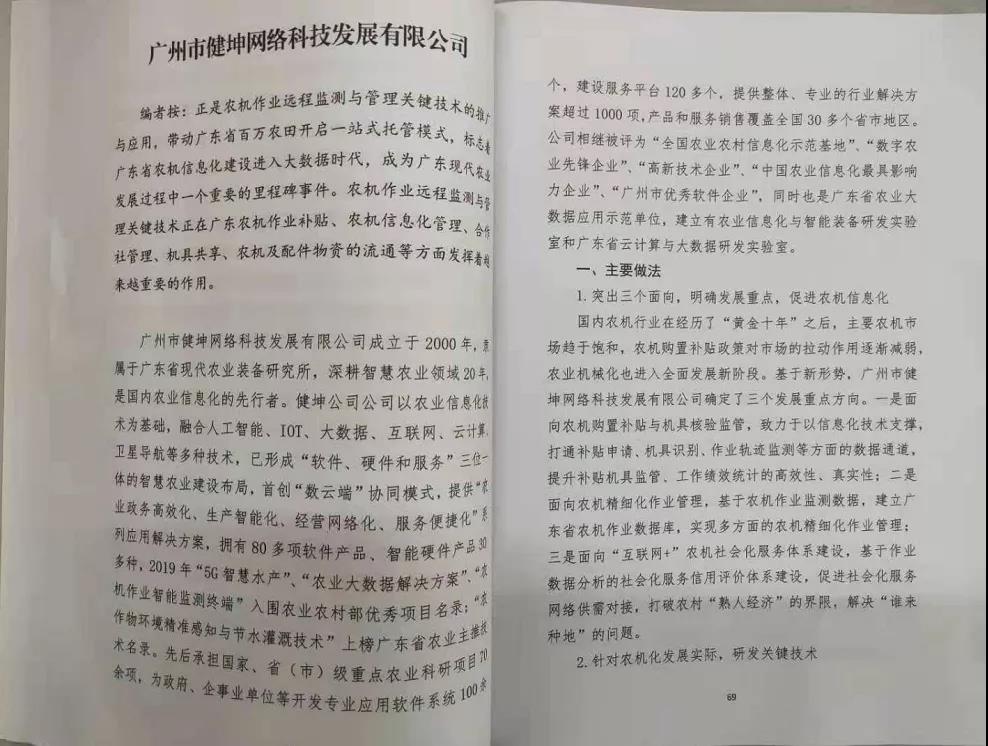 广州市健坤网络科技发展有限公司
编者按：正是农机作业远程监测与管理关键技术的推广
与应用，带动广东省百万农田开启一站式托管模式，标志着
广东省农机信息化建设进入大数据时代，成为广东现代农业
发展过程中一个重要的里程碑事件。农机作业远程监测与管
理关键技术正在广东农机作业补贴、农机信息化管理、合作
社管理、机具共享、农机及配件物资的流通等方面发挥着越
来越重要的作用。
广州市健坤网络科技发展有限公司成立于 2000 年，隶
属于广东省现代农业装备研究所，深耕智慧农业领域 20 年，
是国内农业信息化的先行者。健坤公司公司以农业信息化技
术为基础，融合人工智能、IOT、大数据、互联网、云计算、
卫星导航等多种技术，已形成“软件、硬件和服务”三位一
体的智慧农业建设布局，首创“数云端”协同模式，提供“农
业政务高效化、生产智能化、经营网络化、服务便捷化”系
列应用解决方案，拥有 80 多项软件产品、智能硬件产品 30
多种，2019 年“5G 智慧水产”、“农业大数据解决方案”、“农
机作业智能监测终端”入围农业农村部优秀项目名录；“农
作物环境精准感知与节水灌溉技术”上榜广东省农业主推技
术名录。先后承担国家、省（市）级重点农业科研项目 70
余项，为政府、企事业单位等开发专业应用软件系统 100 余
个，建设服务平台 120 多个，提供整体、专业的行业解决方
案超过 1000 项，产品和服务销售覆盖全国 30 多个省市地区。
公司相继被评为“全国农业农村信息化示范基地”、“数字农
业先锋企业”、“高新技术企业”、“中国农业信息化最具影响
力企业”、“广州市优秀软件企业”，同时也是广东省农业大
数据应用示范单位，建立有农业信息化与智能装备研发实验
室和广东省云计算与大数据研发实验室。
一、主要做法
1. 突出三个面向，明确发展重点，促进农机信息化
国内农机行业在经历了“黄金十年”之后，主要农机市
场趋于饱和，农机购置补贴政策对市场的拉动作用逐渐减弱，
农业机械化也进入全面发展新阶段。基于新形势，广州市健
坤网络科技发展有限公司确定了三个发展重点方向。一是面
向农机购置补贴与机具核验监管，致力于以信息化技术支撑，
打通补贴申请、机具识别、作业轨迹监测等方面的数据通道，
提升补贴机具监管、工作绩效统计的高效性、真实性；二是
面向农机精细化作业管理，基于农机作业监测数据，建立广
东省农机作业数据库，实现多方面的农机精细化作业管理；
三是面向“互联网+”农机社会化服务体系建设，基于作业
数据分析的社会化服务信用评价体系建设，促进社会化服务
网络供需对接，打破农村“熟人经济”的界限，解决“谁来
种地”的问题。
2. 针对农机化发展实际，研发关键技术
69